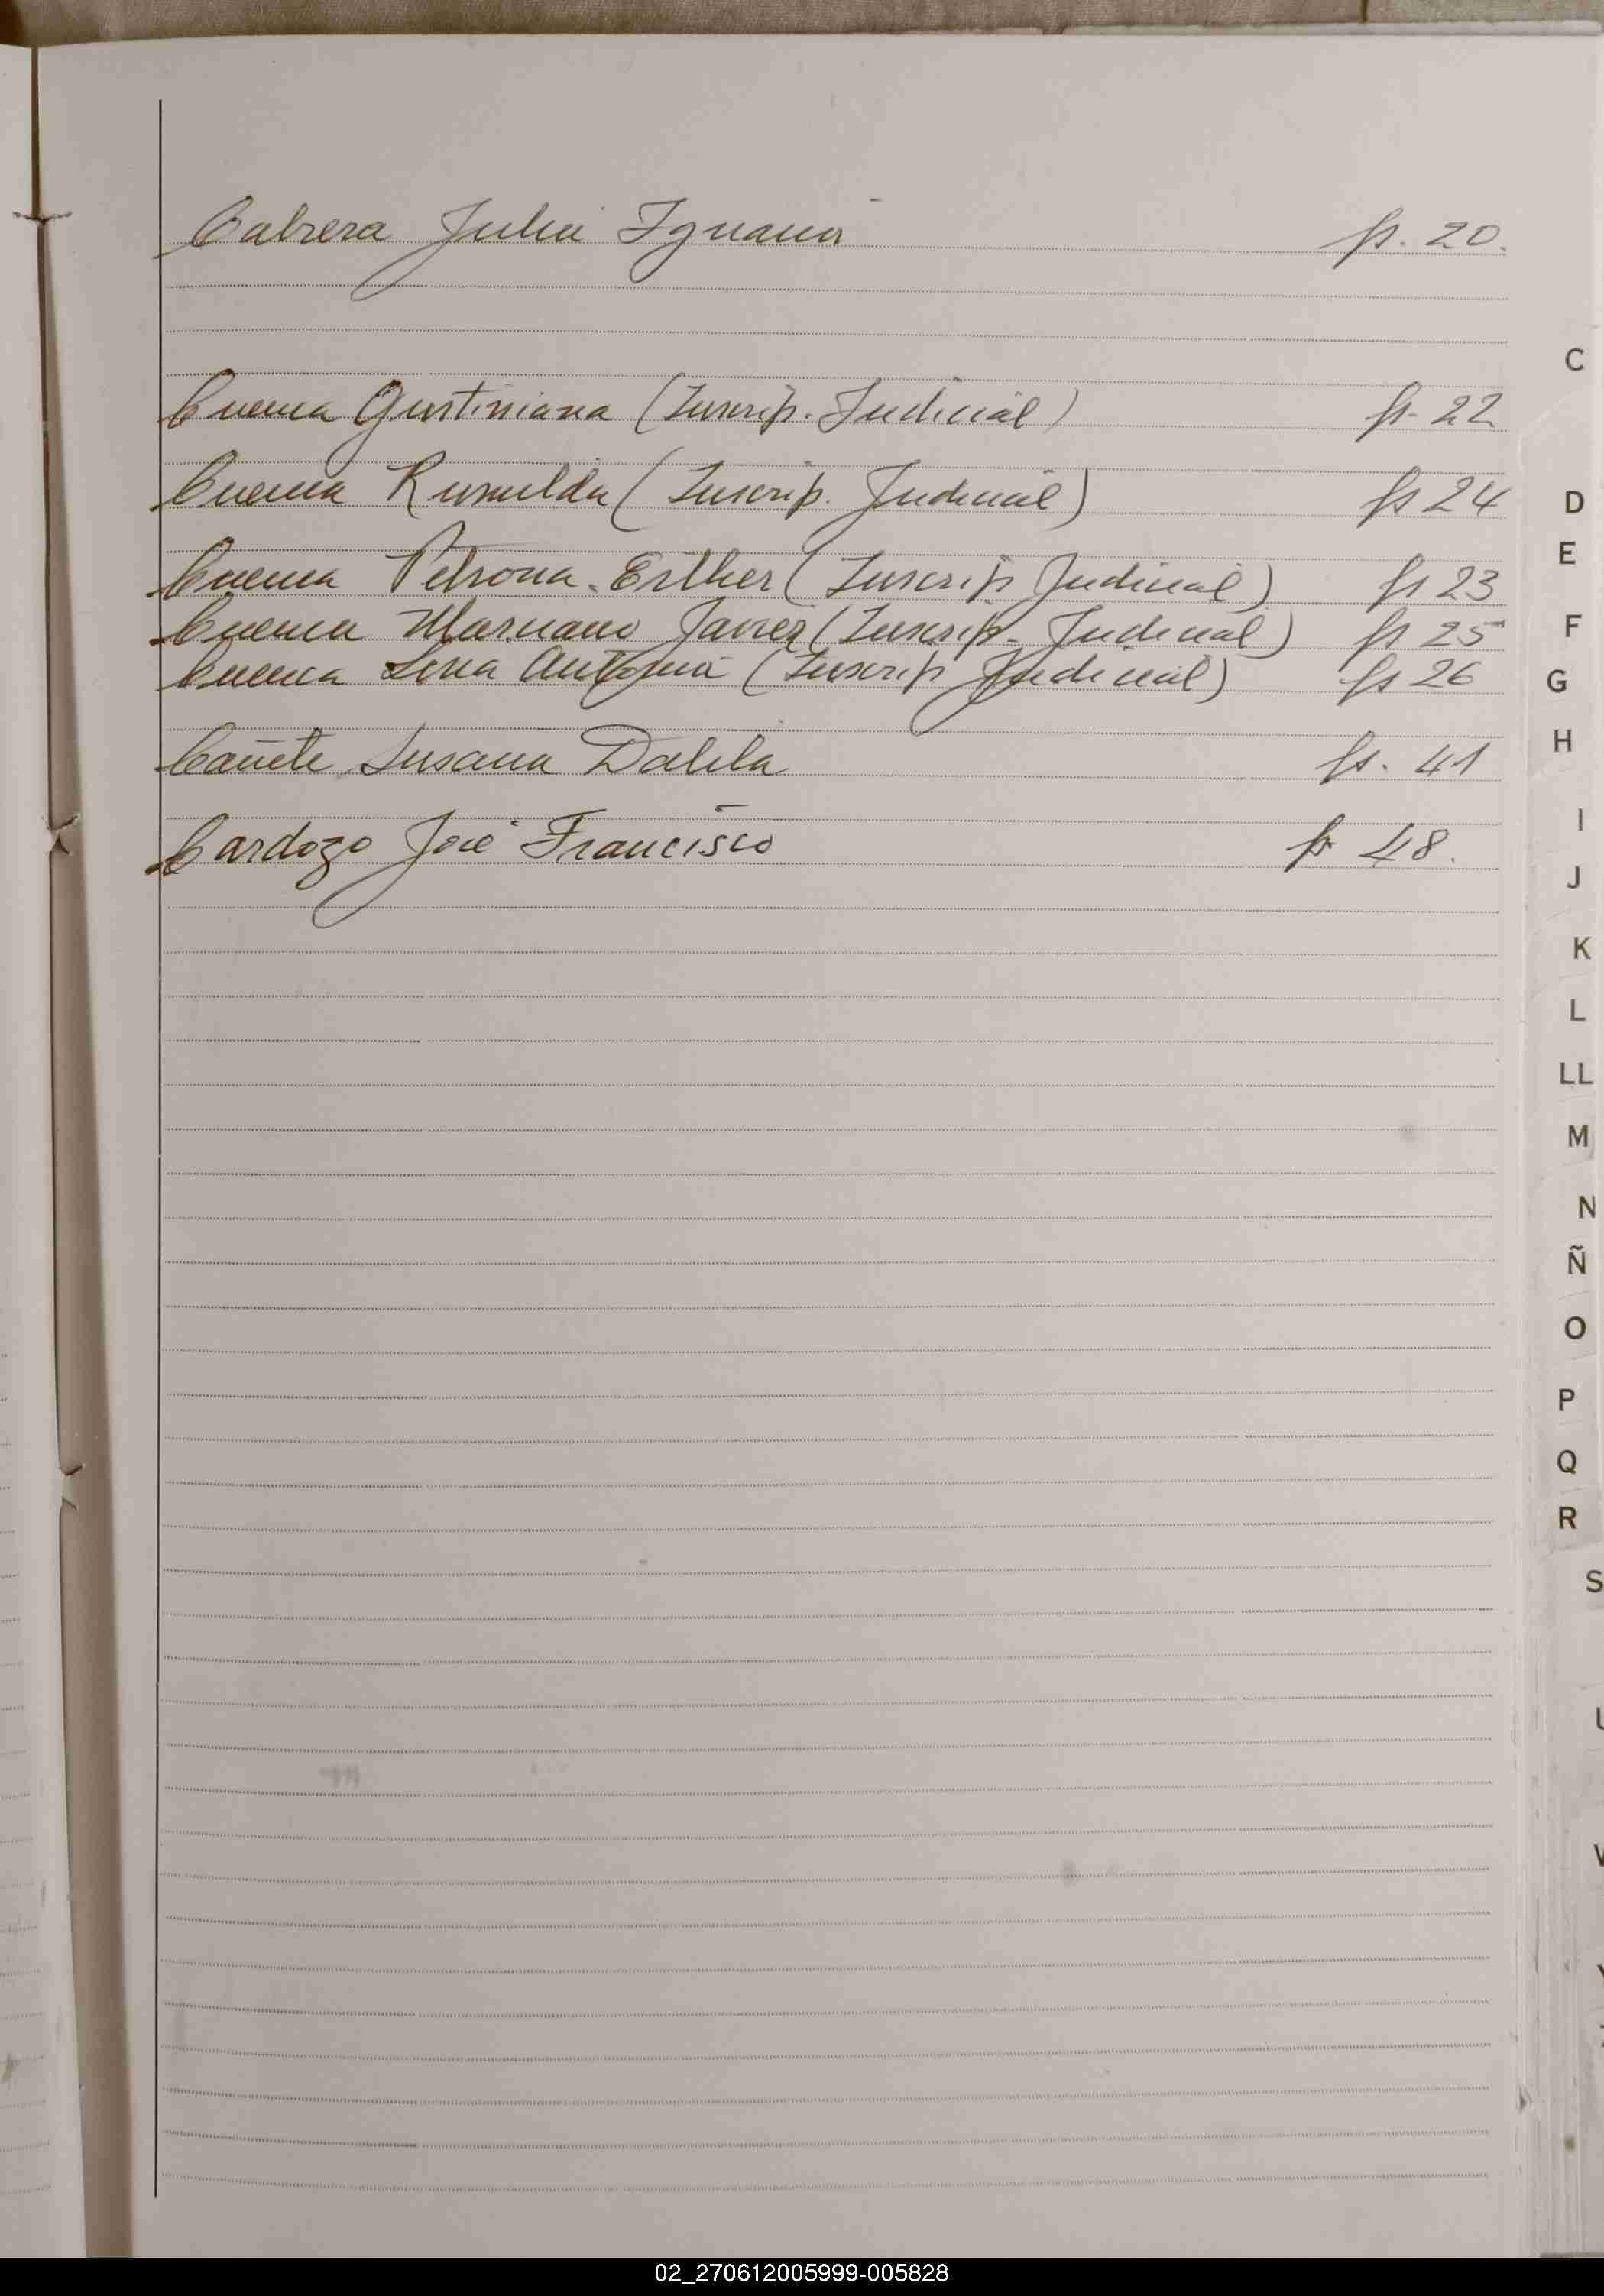 Cabrera Julia Ignacia fs. 20.
Cuenca Gustiniana (Inscrip. Judicial) fs. 22
Cuenca Rumilda (Inscrip. Judicial) fs 24
Cuenca Petrona Esther (Inscrip Judicial) fs 23
Cuenca Mariano Javier (Inscrip. Judicial) fs 25
Cuenca Antonia (Inscrip Judicial) fs 26
Cañete Susana Dalila fs. 41
Cardozo José Francisco fs 48.
C
D
E
F
G
H
I
J
K
L
LL
M
N
Ñ
O
P
Q
R
S
02_270612005999-005828